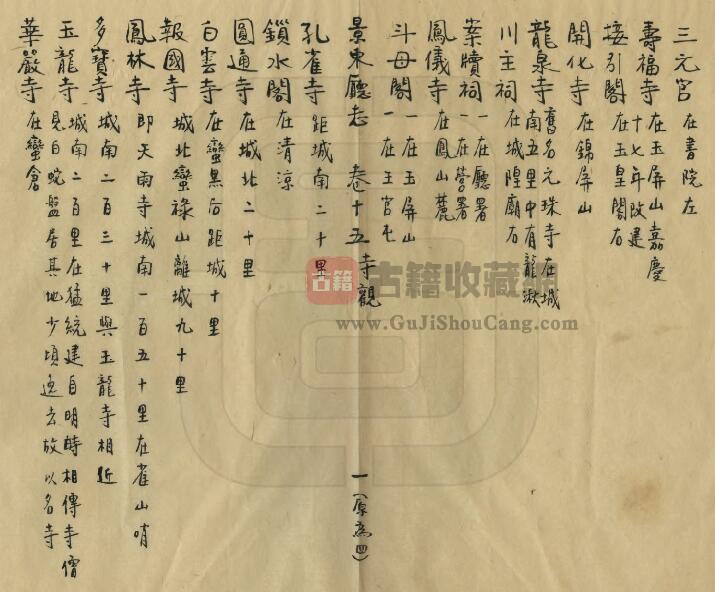 三元宮 在書院左
壽福寺 在玉屏山嘉慶
十七年改建
接引閣 在玉皇閣右
開化寺 在錦屏山
龍泉寺 舊名元珠寺在城
南五里中有龍湫
川主祠 在城隍廟右
案牘祠 一在廳署
一在營署
鳳儀寺 在鳳山麓
斗母閣 一在玉屏山
一在王官屯
景東廳志 卷十五 寺觀 一(原為四)
孔雀寺 距城南二十里
鎖水閣 在清涼
圓通寺 在城北二十里
白雲寺 在蠻黑后距城十里
報國寺 城北蠻祿山離城九十里
鳳林寺 即天雨寺城南一百五十里在雀山哨
多寶寺 城南二百三十里與玉龍寺相近
玉龍寺 城南二百里在猛統建自明時相傳寺僧
見白蛇盤居其地少頃逸去故以名寺
華嚴寺 在蠻倉
古籍 古籍收藏網
www.GuJiShouCang.com